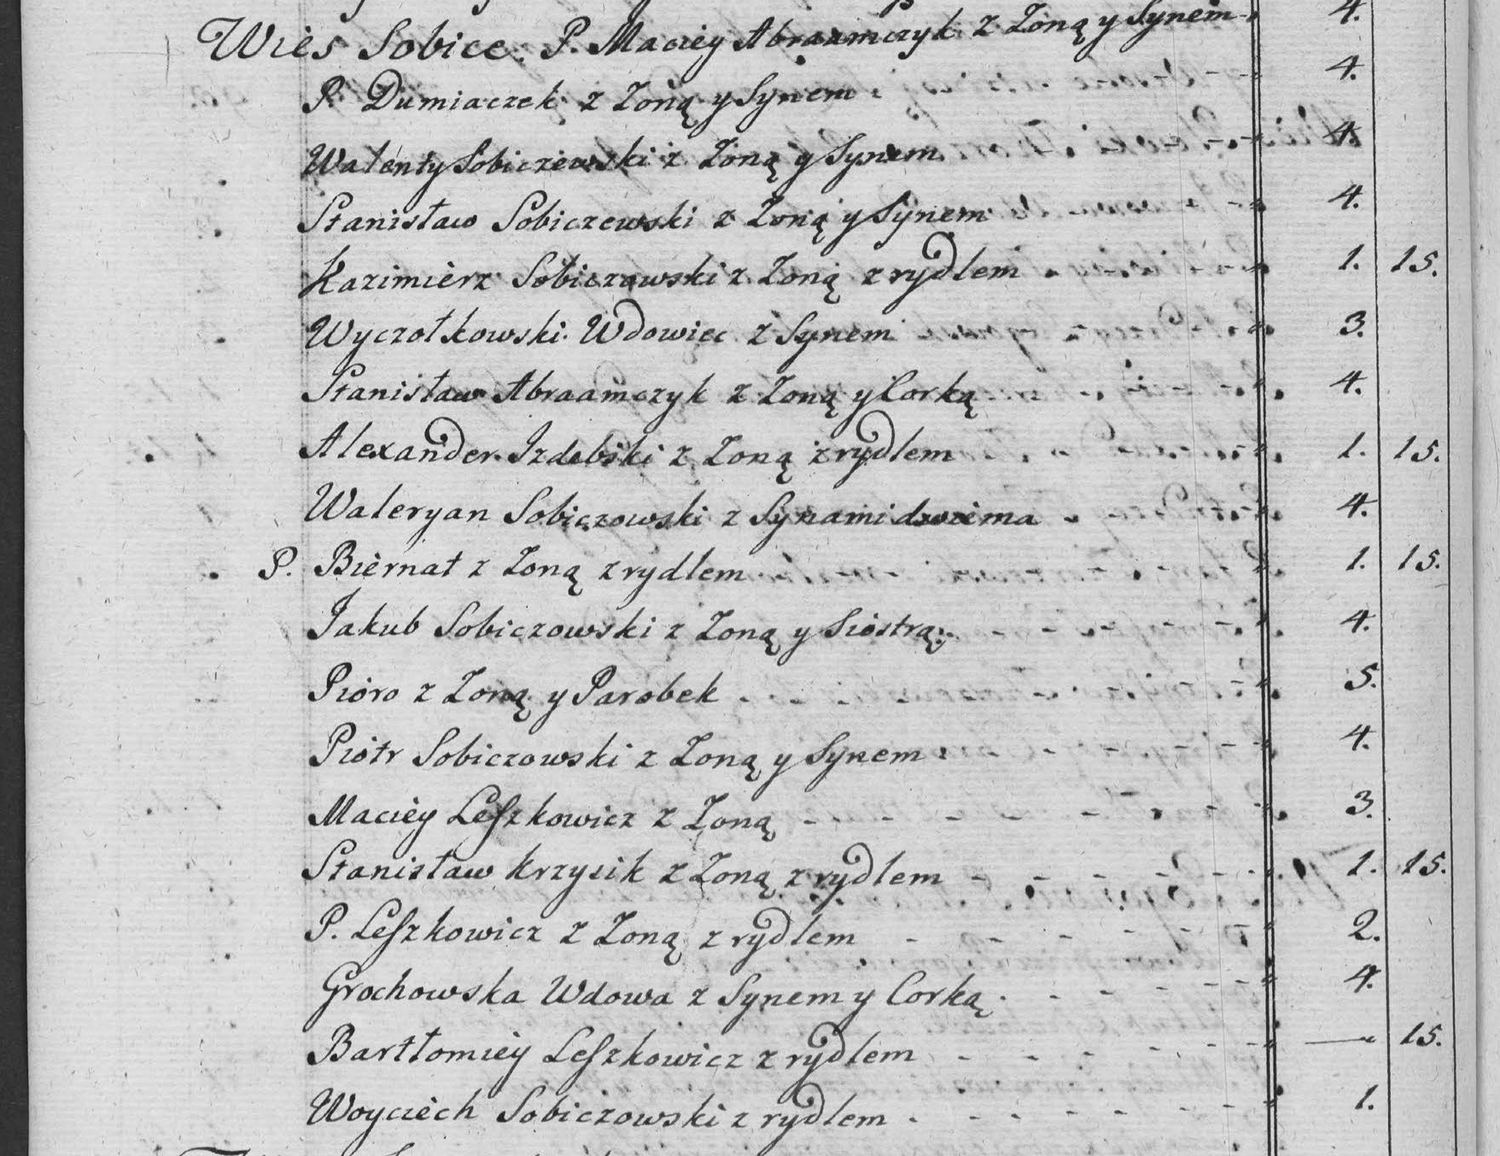 Wies Sobice. P. Maciey Abraamczyk z Zoną y Synem 4.
P. Dumiaczek z Zoną y Synem 4.
Walenty Sobiczewski z Zoną y Synem 4.
Stanisław Sobiczewski z Zoną y Synem 4.
Kazimierz Sobiczowski z Zoną z rydlem 1. 15.
Wyczołkowski Wdowiec z Synem 3.
Stanisław Abraamczyk z Zoną y Corką 4.
Alexander Izdebski z Zoną z rydlem 1. 15.
Waleryan Sobiczowski z Synami dwiema 4.
P. Biernat z Zoną z rydlem 1. 15.
Jakub Sobiczowski z Zoną y Siostrą 4.
Pioro z Zoną y Parobek 5.
Piotr Sobiczowski z Zoną y Synem 4.
Maciey Leszkowicz z Zoną 3.
Stanisław Krzysik z Zoną z rydlem 1. 15.
P. Leszkowicz z Zoną z rydlem 2.
Grochowska Wdowa z Synem y Corką 4.
Bartłomiey Leszkowicz z rydlem — 15.
Woyciech Sobiczowski z rydlem 1.